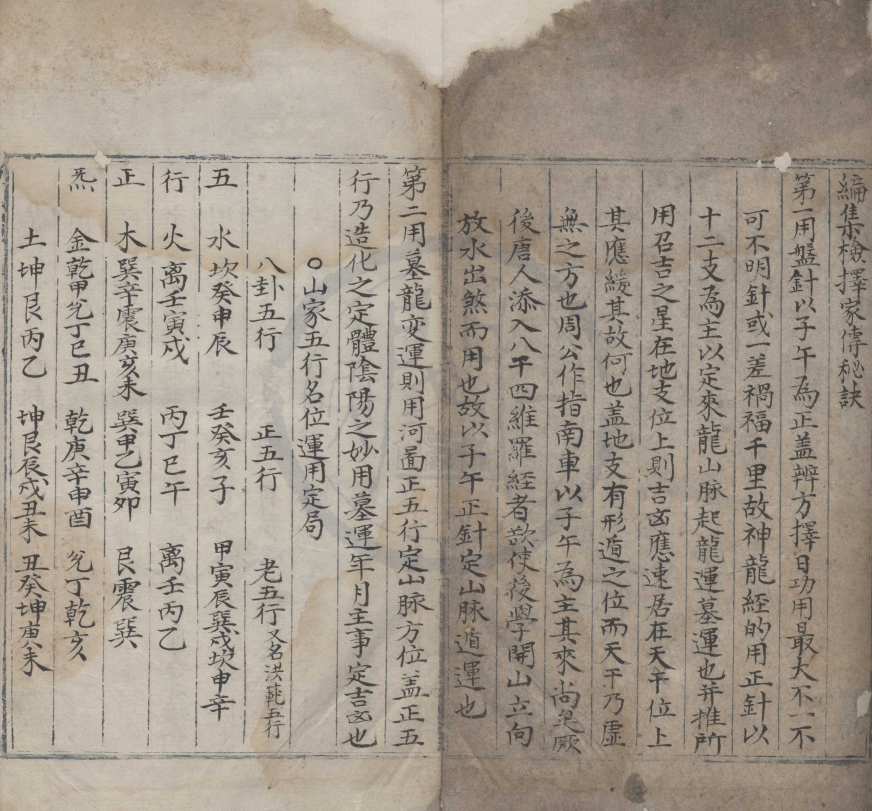 編集檢擇家傳秘訣
第一用盤針以子午為正盖辨方擇日功用最大不一不
可不明針或一差禍福千里故神龍經的用正針以
十二支為主以定來龍山脉起龍運墓運也并推所
用召吉之星在地支位上則吉凶應速居在天干位上
其應緩其故何也盖地支有形道之位而天干乃虛
無之方也周公作指南車以子午為主其來尚矣厥
後唐人添入八干四維羅經者欲使後學開山立向
放水出煞而用也故以子午正針定山脉道運也
第二用墓龍変運則用河啚正五行定山脉方位盖正五
行乃造化之定體陰陽之妙用墓運年月主事定吉凶也
○山家五行名位運用定局
八卦五行 正五行 老五行又名洪範五行
五 水坎癸申辰 壬癸亥子 甲寅辰巽戌坎申辛
行 火離壬寅戌 丙丁巳午 离壬丙乙
正 木巽辛震庚亥未 巽甲乙寅卯 艮震巽
炁 金乾甲兊丁巳丑 乾庚辛申酉 兊丁乾亥
土坤艮丙乙 坤艮辰戌丑未 丑癸坤庚未